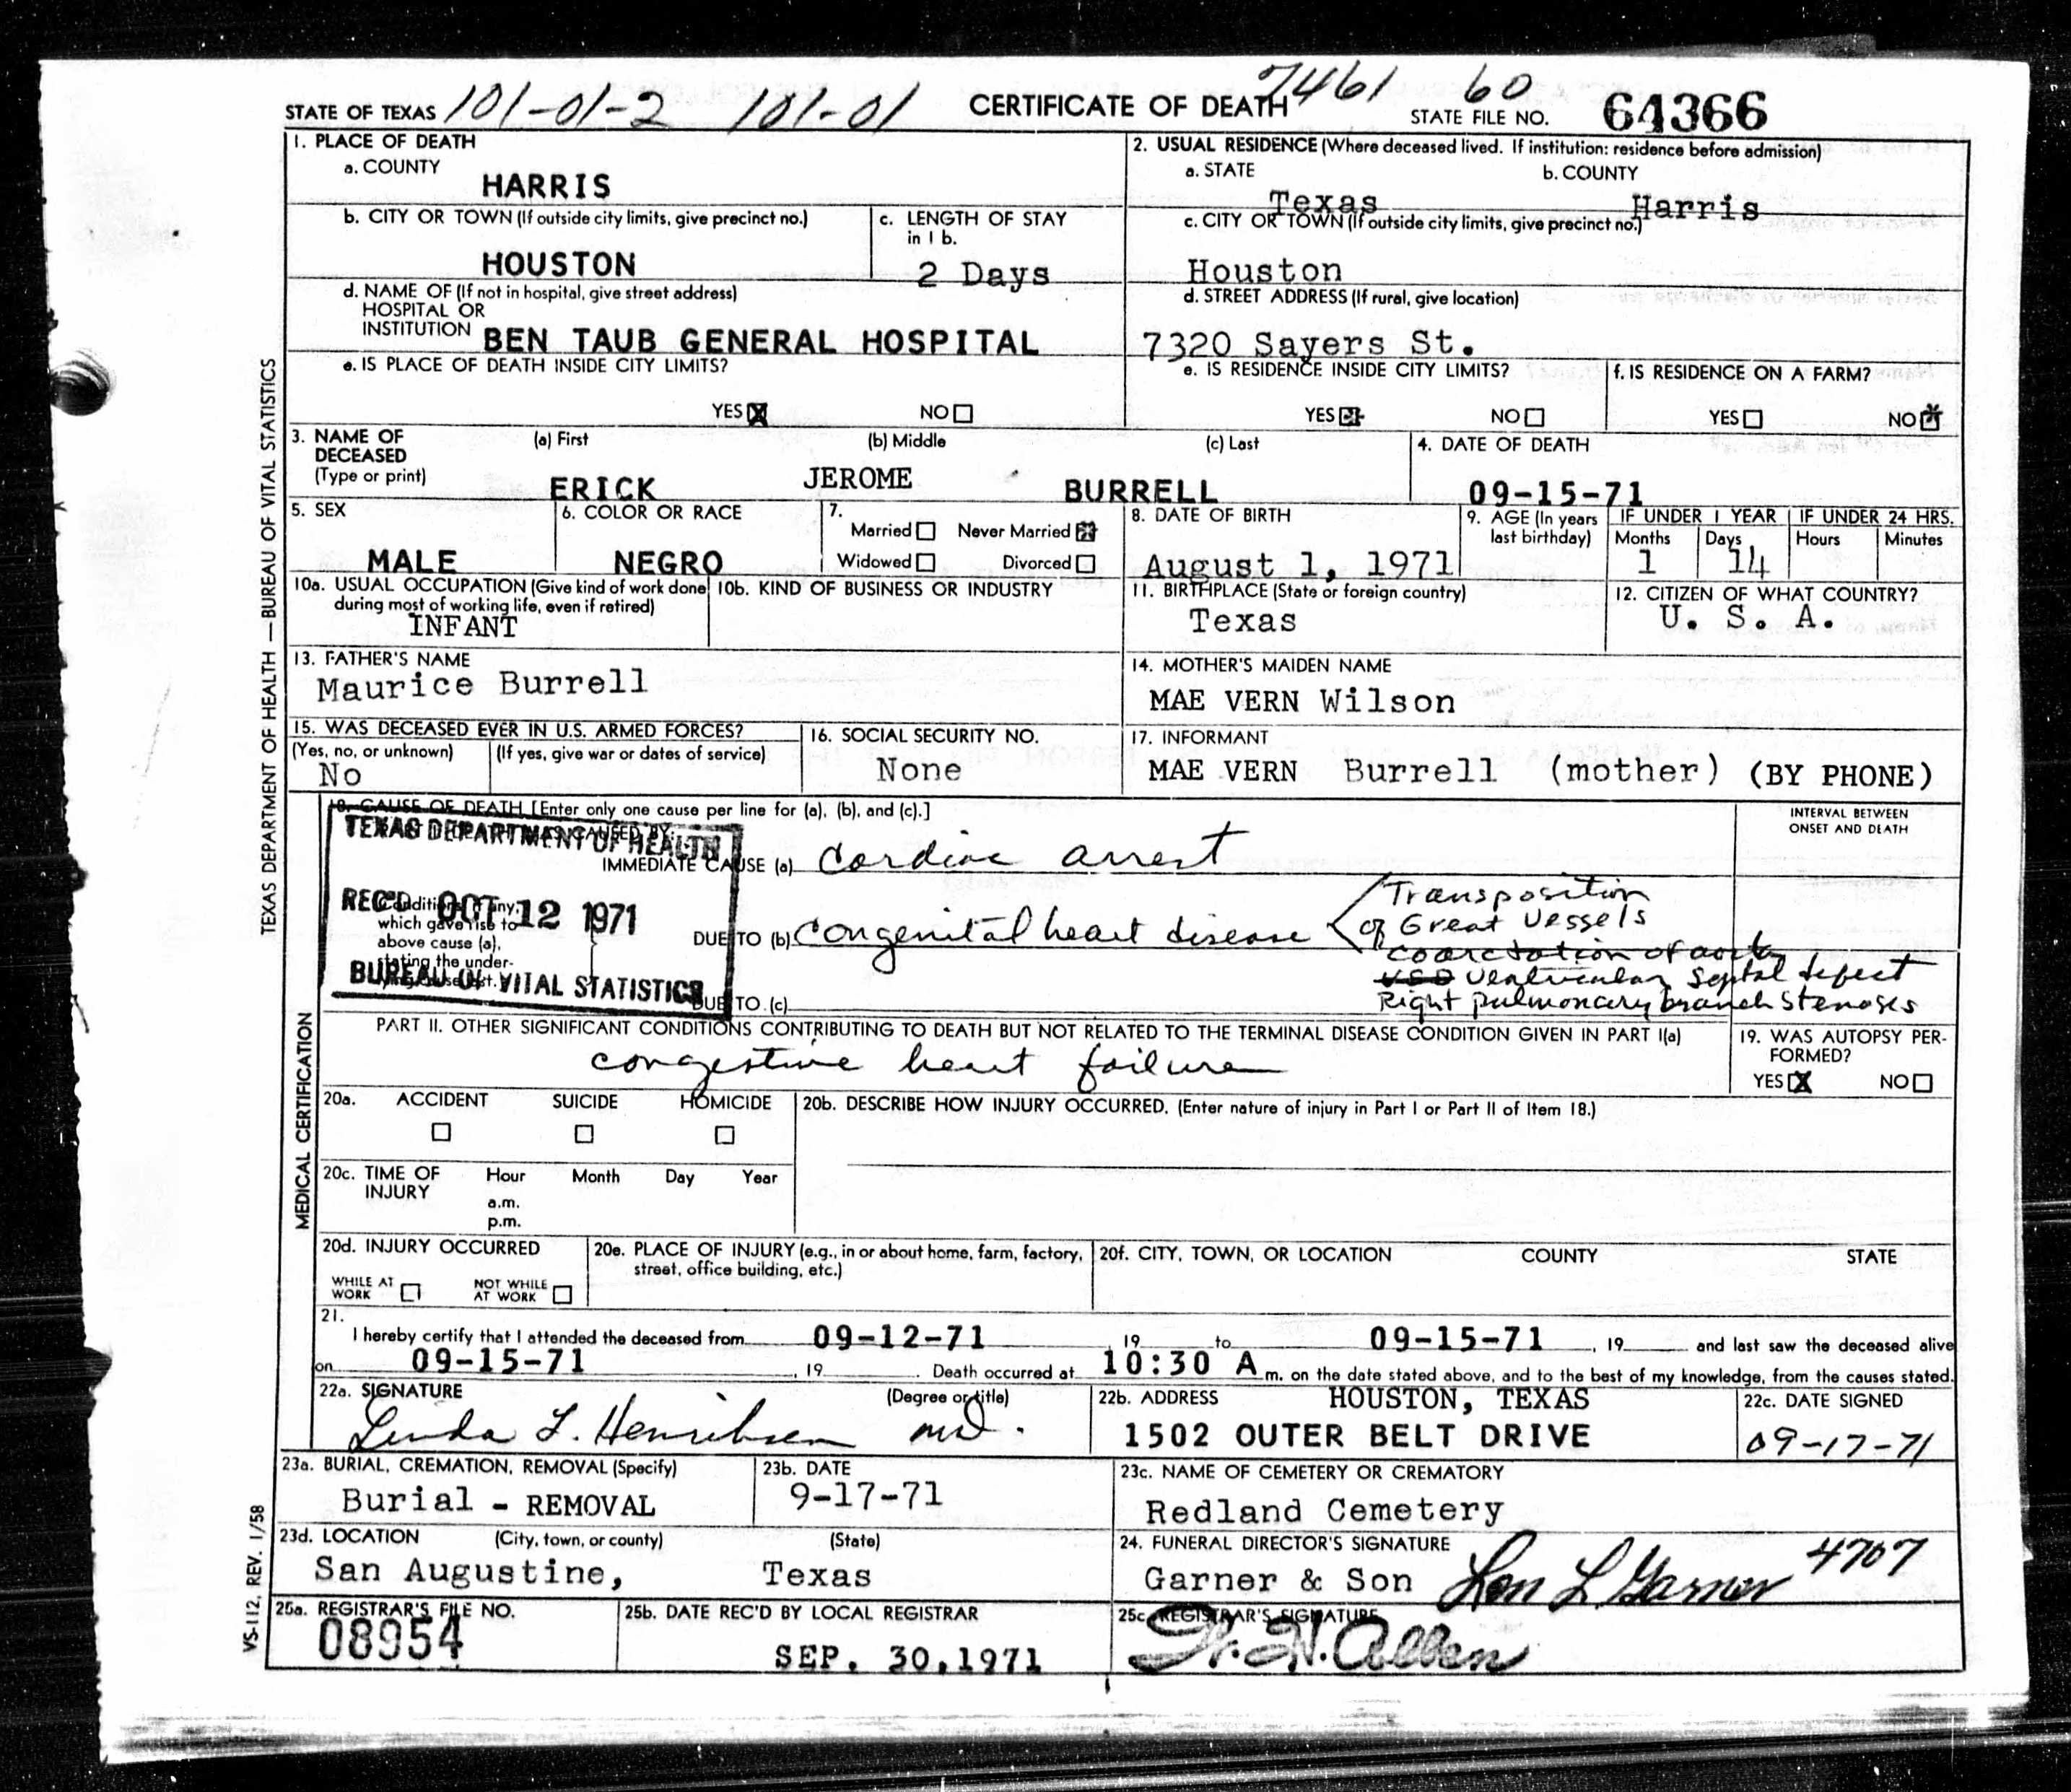 STATE OF TEXAS 101-01-2 101-01 CERTIFICATE OF DEATH 7461 60 STATE FILE NO. 64366
1. PLACE OF DEATH
a. COUNTY
HARRIS
b. CITY OR TOWN (If outside city limits, give precinct no.)
HOUSTON
c. LENGTH OF STAY
in 1 b.
2 Days
d. NAME OF (If not in hospital, give street address)
HOSPITAL OR
INSTITUTION BEN TAUB GENERAL HOSPITAL
e. IS PLACE OF DEATH INSIDE CITY LIMITS?
YES X NO
2. USUAL RESIDENCE (Where deceased lived. If institution: residence before admission)
a. STATE b. COUNTY
Texas Harris
c. CITY OR TOWN (If outside city limits, give precinct no.)
Houston
d. STREET ADDRESS (If rural, give location)
7320 Sayers St.
e. IS RESIDENCE INSIDE CITY LIMITS?
YES X NO
f. IS RESIDENCE ON A FARM?
YES NO X
3. NAME OF
DECEASED
(Type or print)
(a) First (b) Middle (c) Last
ERICK JEROME BURRELL
4. DATE OF DEATH
09-15-71
5. SEX
MALE
6. COLOR OR RACE
NEGRO
7.
Married Never Married X
Widowed Divorced
8. DATE OF BIRTH
August 1, 1971
9. AGE (In years
last birthday)
IF UNDER 1 YEAR
Months Days
1 14
IF UNDER 24 HRS.
Hours Minutes
10a. USUAL OCCUPATION (Give kind of work done
during most of working life, even if retired)
INFANT
10b. KIND OF BUSINESS OR INDUSTRY
11. BIRTHPLACE (State or foreign country)
Texas
12. CITIZEN OF WHAT COUNTRY?
U. S. A.
13. FATHER'S NAME
Maurice Burrell
14. MOTHER'S MAIDEN NAME
MAE VERN Wilson
15. WAS DECEASED EVER IN U.S. ARMED FORCES?
(Yes, no, or unknown) (If yes, give war or dates of service)
No
16. SOCIAL SECURITY NO.
None
17. INFORMANT
MAE VERN Burrell (mother) (BY PHONE)
18. CAUSE OF DEATH [Enter only one cause per line for (a), (b), and (c).]
INTERVAL BETWEEN
ONSET AND DEATH
TEXAS DEPARTMENT OF HEALTH
REC'D OCT 12 1971
BUREAU OF VITAL STATISTICS
IMMEDIATE CAUSE (a) Cardiac arrest
which gave rise to
above cause (a),
stating the under-
DUE TO (b) Congenital heart disease
Transposition
of Great Vessels
coarctation of aorta
VSD Ventricular Septal defect
Right pulmonary branch stenoses
DUE TO (c)
PART II. OTHER SIGNIFICANT CONDITIONS CONTRIBUTING TO DEATH BUT NOT RELATED TO THE TERMINAL DISEASE CONDITION GIVEN IN PART I(a)
congestive heart failure
19. WAS AUTOPSY PER-
FORMED?
YES X NO
20a. ACCIDENT SUICIDE HOMICIDE
20b. DESCRIBE HOW INJURY OCCURRED. (Enter nature of injury in Part I or Part II of Item 18.)
20c. TIME OF
INJURY
Hour Month Day Year
a.m.
p.m.
20d. INJURY OCCURRED
WHILE AT
WORK
NOT WHILE
AT WORK
20e. PLACE OF INJURY (e.g., in or about home, farm, factory,
street, office building, etc.)
20f. CITY, TOWN, OR LOCATION COUNTY STATE
21.
I hereby certify that I attended the deceased from 09-12-71, 19 to 09-15-71, 19 and last saw the deceased alive
on 09-15-71, 19. Death occurred at 10:30 A m. on the date stated above, and to the best of my knowledge, from the causes stated.
22a. SIGNATURE (Degree or title)
Linda L. Henriksen MD.
22b. ADDRESS HOUSTON, TEXAS
1502 OUTER BELT DRIVE
22c. DATE SIGNED
09-17-71
23a. BURIAL, CREMATION, REMOVAL (Specify)
Burial - REMOVAL
23b. DATE
9-17-71
23c. NAME OF CEMETERY OR CREMATORY
Redland Cemetery
23d. LOCATION (City, town, or county) (State)
San Augustine, Texas
24. FUNERAL DIRECTOR'S SIGNATURE
Garner & Son Lon L Garner 4707
25a. REGISTRAR'S FILE NO.
08954
25b. DATE REC'D BY LOCAL REGISTRAR
SEP. 30, 1971
25c. REGISTRAR'S SIGNATURE
W. N. Allen
TEXAS DEPARTMENT OF HEALTH — BUREAU OF VITAL STATISTICS
MEDICAL CERTIFICATION
VS-112, REV. 1/58